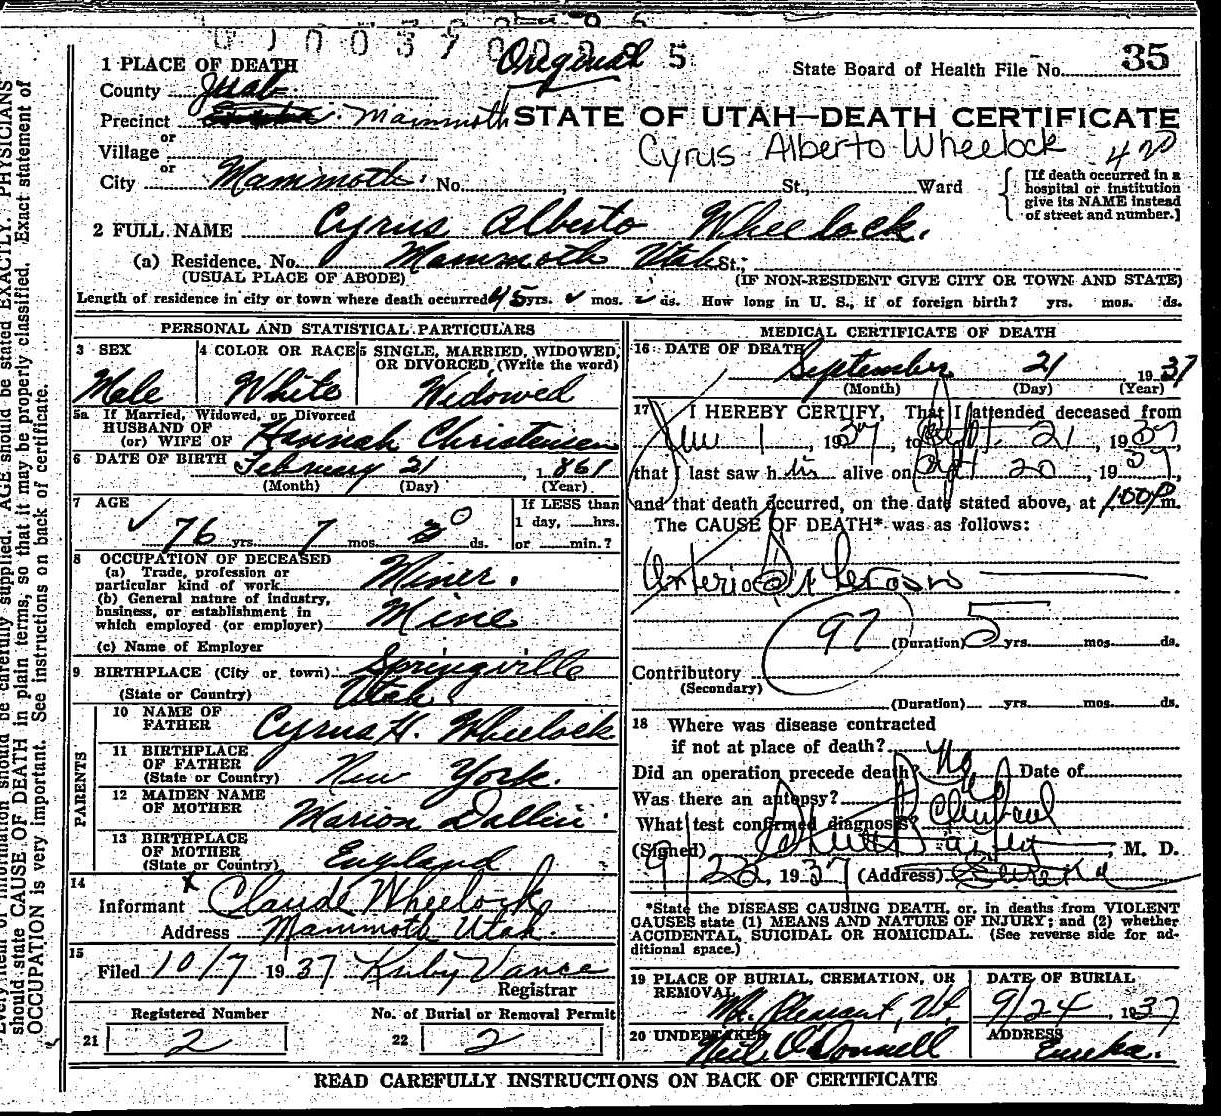 Original 5
1 PLACE OF DEATH
State Board of Health File No. 35
County Juab
Precinct Mammoth
STATE OF UTAH—DEATH CERTIFICATE
or
Village
Cyrus Alberto Wheelock
or
City Mammoth. No. , St., Ward
[If death occurred in a hospital or institution give its NAME instead of street and number.]
2 FULL NAME Cyrus Alberto Wheelock.
(a) Residence. No. Mammoth Utah St.,
(USUAL PLACE OF ABODE) (IF NON-RESIDENT GIVE CITY OR TOWN AND STATE)
Length of residence in city or town where death occurred 45 yrs. mos. ds. How long in U. S., if of foreign birth? yrs. mos. ds.
PERSONAL AND STATISTICAL PARTICULARS
3 SEX
Male
4 COLOR OR RACE
White
5 SINGLE, MARRIED, WIDOWED, OR DIVORCED (Write the word)
Widowed
5a If Married, Widowed, or Divorced
HUSBAND OF
(or) WIFE OF Hannah Christensen
6 DATE OF BIRTH February 21 1861
(Month) (Day) (Year)
7 AGE
76 yrs. 7 mos. 0 ds.
If LESS than
1 day, hrs.
or min.?
8 OCCUPATION OF DECEASED
(a) Trade, profession or
particular kind of work Miner.
(b) General nature of industry,
business, or establishment in
which employed (or employer) Mine
(c) Name of Employer
9 BIRTHPLACE (City or town) Springville
(State or Country) Utah.
PARENTS
10 NAME OF
FATHER Cyrus H. Wheelock
11 BIRTHPLACE
OF FATHER
(State or Country) New York.
12 MAIDEN NAME
OF MOTHER Marion Dallin
13 BIRTHPLACE
OF MOTHER
(State or Country) England
14
Informant x Claude Wheelock
Address Mammoth Utah.
15
Filed 10/7 1937 Ruby Vance
Registrar
Registered Number No. of Burial or Removal Permit
21 2 22 2
MEDICAL CERTIFICATE OF DEATH
16 DATE OF DEATH September 21 1937
(Month) (Day) (Year)
17 I HEREBY CERTIFY, That I attended deceased from
1, 1937, to Sept. 21, 1937,
that I last saw h im alive on Sept 20, 1937,
and that death occurred, on the date stated above, at 1:00 P m.
The CAUSE OF DEATH* was as follows:
Arterio Sclerosis
97 (Duration) 5 yrs. mos. ds.
Contributory
(Secondary)
(Duration) yrs. mos. ds.
18 Where was disease contracted
if not at place of death?
Did an operation precede death? No Date of
Was there an autopsy? No
What test confirmed diagnosis? Clinical
(Signed) , M. D.
9/22, 1937 (Address) Eureka
*State the DISEASE CAUSING DEATH, or, in deaths from VIOLENT
CAUSES state (1) MEANS AND NATURE OF INJURY; and (2) whether
ACCIDENTAL, SUICIDAL OR HOMICIDAL. (See reverse side for ad-
ditional space.)
19 PLACE OF BURIAL, CREMATION, OR
REMOVAL
Mt. Pleasant, Ut.
DATE OF BURIAL
9/24, 1937
20 UNDERTAKER
Neil O'Donnell
ADDRESS
Eureka.
READ CAREFULLY INSTRUCTIONS ON BACK OF CERTIFICATE
carefully supplied. AGE should be stated EXACTLY. PHYSICIANS
should state CAUSE OF DEATH in plain terms, so that it may be properly classified. Exact statement of
OCCUPATION is very important. See instructions on back of certificate.